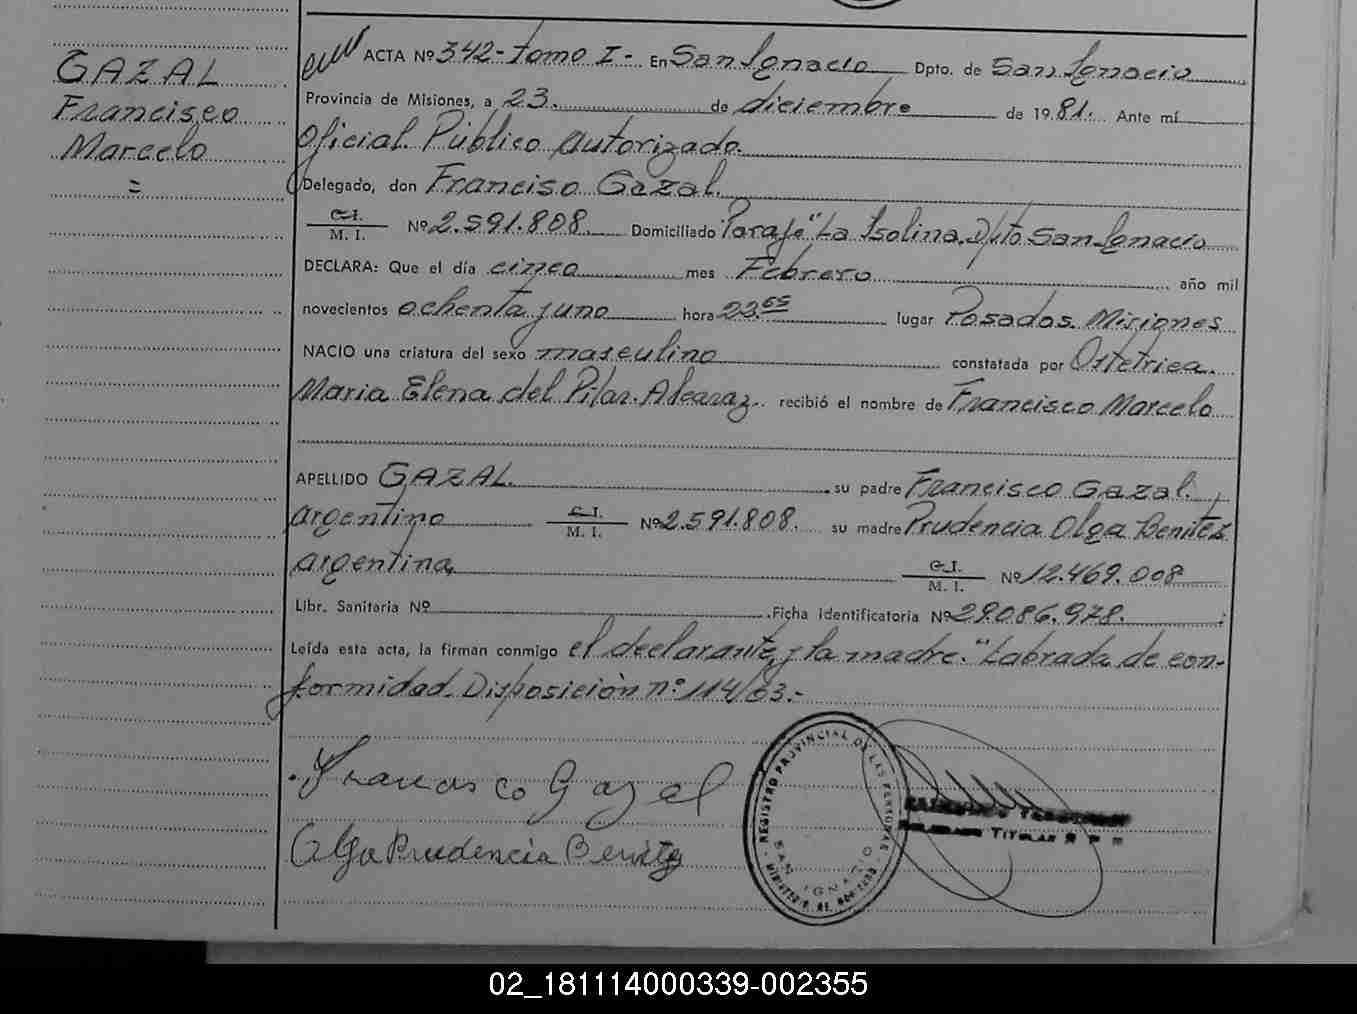 GAZAL
Francisco
Marcelo
=
ACTA Nº 342- tomo I - En San Ignacio Dpto. de San Ignacio
Provincia de Misiones, a 23. de diciembre de 1981. Ante mí
Oficial Público Autorizado.
Delegado, don Franciso Gazal.
C.I.
M. I. Nº 2.591.808. Domiciliado Paraje "La Isolina. Dpto San Ignacio
DECLARA: Que el día cinco mes Febrero año mil
novecientos ochenta y uno hora 23. lugar Posadas. Misiones
NACIO una criatura del sexo masculino constatada por Ostetrica.
Maria Elena del Pilar. Alcaraz. recibió el nombre de Francisco Marcelo
APELLIDO GAZAL. su padre Francisco Gazal.,
argentino C.I. M. I. Nº 2.591.808. su madre Prudencia Olga Benitez
argentina, C.I. M. I. Nº 12.469.008
Libr. Sanitaria Nº Ficha identificatoria Nº 29.086.978. ;
Leída esta acta, la firman conmigo el declarante, y la madre. "Labrada de con-
formidad. Disposición nº 114/63.-
Francisco Gazal
Olga Prudencia Benitez
REGISTRO PROVINCIAL DE LAS PERSONAS
SAN IGNACIO
TITULAR R P P
02_181114000339-002355